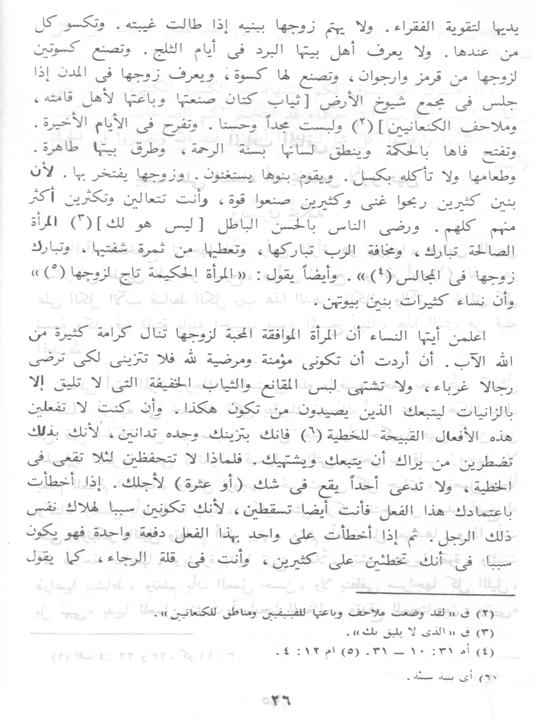 يديها لتقوية الفقراء. ولا يهتم زوجها ببنيه إذا طالت غيبته. وتكسو كل
من عندها. ولا يعرف أهل بيتها البرد فى أيام الثلج. وتصنع كسوتين
لزوجها من قرمز وارجوان، وتصنع لها كسوة، ويعرف زوجها فى المدن إذا
جلس فى مجمع شيوخ الأرض [ثياب كتان صنعتها وباعتها لأهل قامته،
وملاحف الكنعانيين](٢) ولبست مجداً وحسنا. وتفرح فى الأيام الأخيرة.
وتفتح فاها بالحكمة وينطق لسانها بسنة الرحمة، وطرق بيتها طاهرة.
وطعامها ولا تأكله بكسل. ويقوم بنوها يستغنون. وزوجها يفتخر بها. لأن
بنين كثيرين ربحوا غنى وكثيرين صنعوا قوة، وأنت تتعالين وتكثرين أكثر
منهم كلهم. ورضى الناس بالحسن الباطل [ليس هو لك](٣) المرأة
الصالحة تبارك، ومخافة الرب تباركها، وتعطيها من ثمرة شفتيها. وتبارك
زوجها فى المجالس(٤)». وأيضاً يقول: «المرأة الحكيمة تاج لزوجها(٥)»
وأن نساء كثيرات بنين بيوتهن.
اعلمن أيتها النساء أن المرأة الموافقة المحبة لزوجها تنال كرامة كثيرة من
الله الآب. أن أردت أن تكونى مؤمنة ومرضية لله فلا تتزينى لكى ترضى
رجالا غرباء، ولا تشتهى لبس المقانع والثياب الخفيفة التى لا تليق إلا
بالزانيات ليتبعك الذين يصيدون من تكون هكذا. وأن كنت لا تفعلين
هذه الأفعال القبيحة للخطية(٦) فانك بتزينك وحده تدانين، لأنك بذلك
تضطرين من يراك أن يتبعك ويشتهيك. فلماذا لا تتحفظين لئلا تقعى فى
الخطية، ولا تدعى أحداً يقع فى شك (أو عثرة) لأجلك. إذا أخطأت
باعتمادك هذا الفعل فأنت أيضا تسقطين، لأنك تكونين سببا لهلاك نفس
ذلك الرجل. ثم إذا أخطأت على واحد بهذا الفعل دفعة واحدة فهو يكون
سببا فى أنك تخطئين على كثيرين، وأنت فى قلة الرجاء، كما يقول
(٢) ق «لقد وضعت ملاحف وباعتها للفينيقيين ومناطق للكنعانيين».
(٣) ق «الذى لا يليق بك».
(٤) أم ٣١: ١٠ – ٣١. (٥) ام ١٢: ٤.
(٦) أى
٣٦